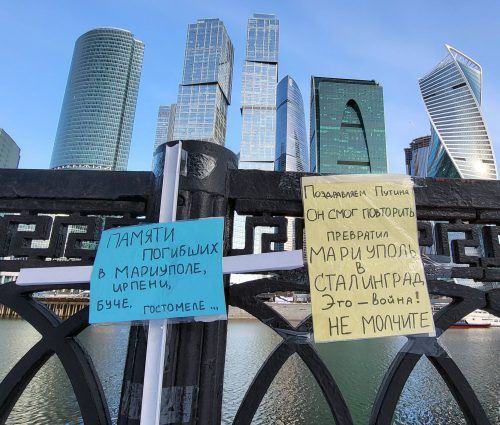 ПАМЯТИ
ПОГИБШИХ
В МАРИУПОЛЕ,
ИРПЕНИ,
БУЧЕ, ГОСТОМЕЛЕ...
ПОЗДРАВЛЯЕМ ПУТИНА
ОН СМОГ ПОВТОРИТЬ
ПРЕВРАТИЛ
МАРИУПОЛЬ
В
СТАЛИНГРАД
ЭТО – ВОЙНА!
НЕ МОЛЧИТЕ